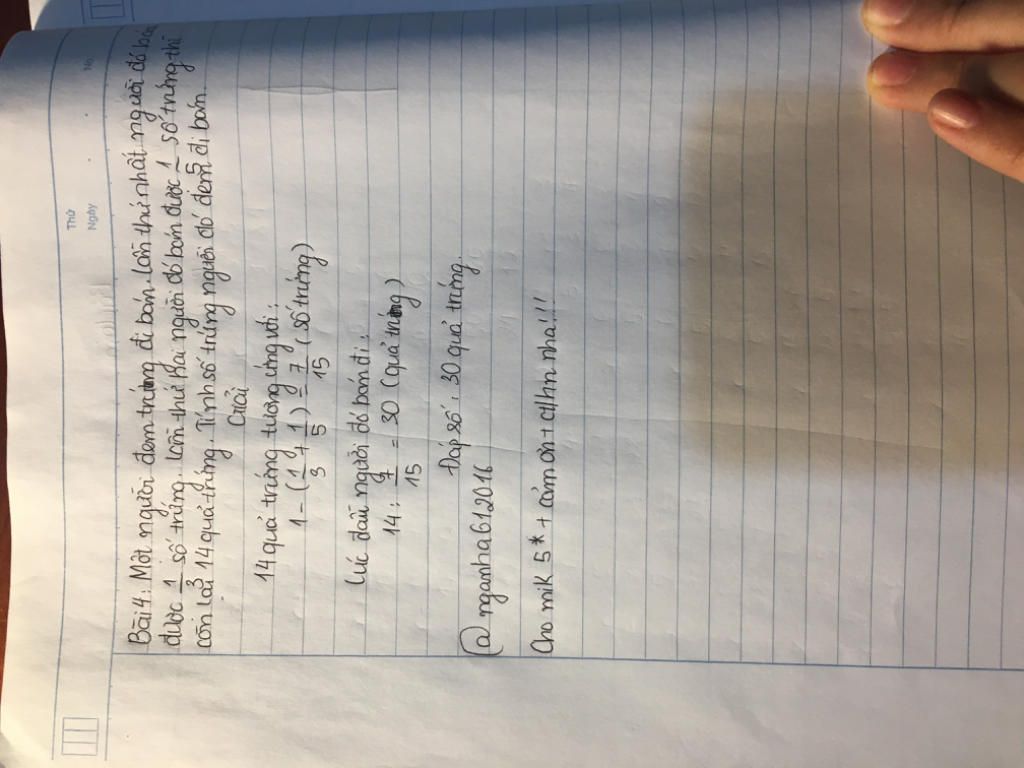 Thứ
Ngày
No
Bài 4: Một người đem trứng đi bán. Lần thứ nhất người đó bán
được 1/3 số trứng. Lần thứ hai người đó bán được 1/5 số trứng thì
còn lại 14 quả trứng. Tính số trứng người đó đem đi bán.
Giải
14 quả trứng tương ứng với:
1 - (1/3 + 1/5) = 7/15 (số trứng)
Lúc đầu người đó bán đi:
14 : 7/15 = 30 (quả trứng)
Đáp số: 30 quả trứng.
@nganha612016
Cho mik 5* + cảm ơn + ctlhn nha!!!